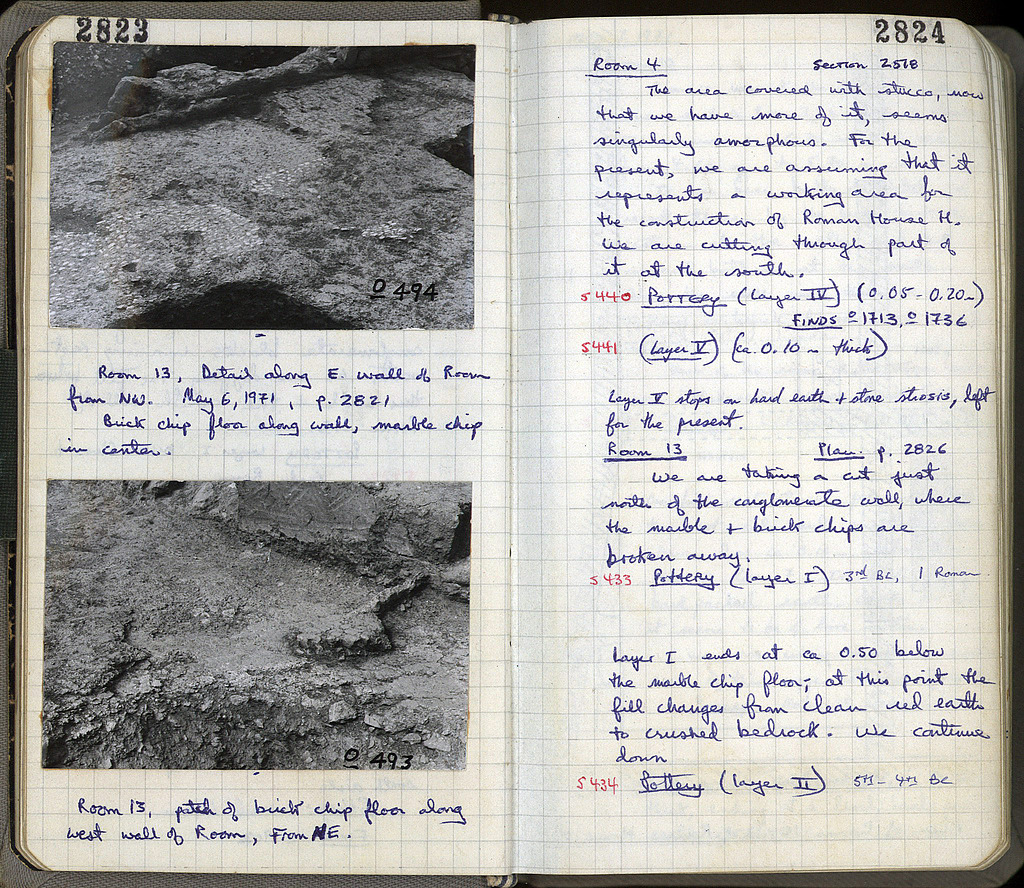 2823
O 494
Room 13, Detail along E. wall of Room
from NW. May 6, 1971, p. 2821
Brick chip floor along wall, marble chip
in center.
O 493
Room 13, patch of brick chip floor along
west wall of Room, From NE.
2824
Room 4 Section 2518
The area covered with stucco, now
that we have more of it, seems
singularly amorphous. For the
present, we are assuming that it
represents a working area for
the construction of Roman House H.
We are cutting through part of
it at the south.
S 440 Pottery (Layer IV) (0.05-0.20m)
FINDS O 1713, O 1736
S 441 (Layer V) (ca. 0.10 m thick)
Layer V stops on hard earth + stone strosis, left
for the present.
Room 13 Plan. p. 2826
We are taking a cut just
north of the conglomerate wall, where
the marble + brick chips are
broken away.
S 433 Pottery (layer I) 3rd BC, 1 Roman
Layer I ends at ca 0.50 below
the marble chip floor; at this point the
fill changes from clean red earth
to crushed bedrock. We continue
down
S 434 Pottery (layer II) 5th - 4th BC